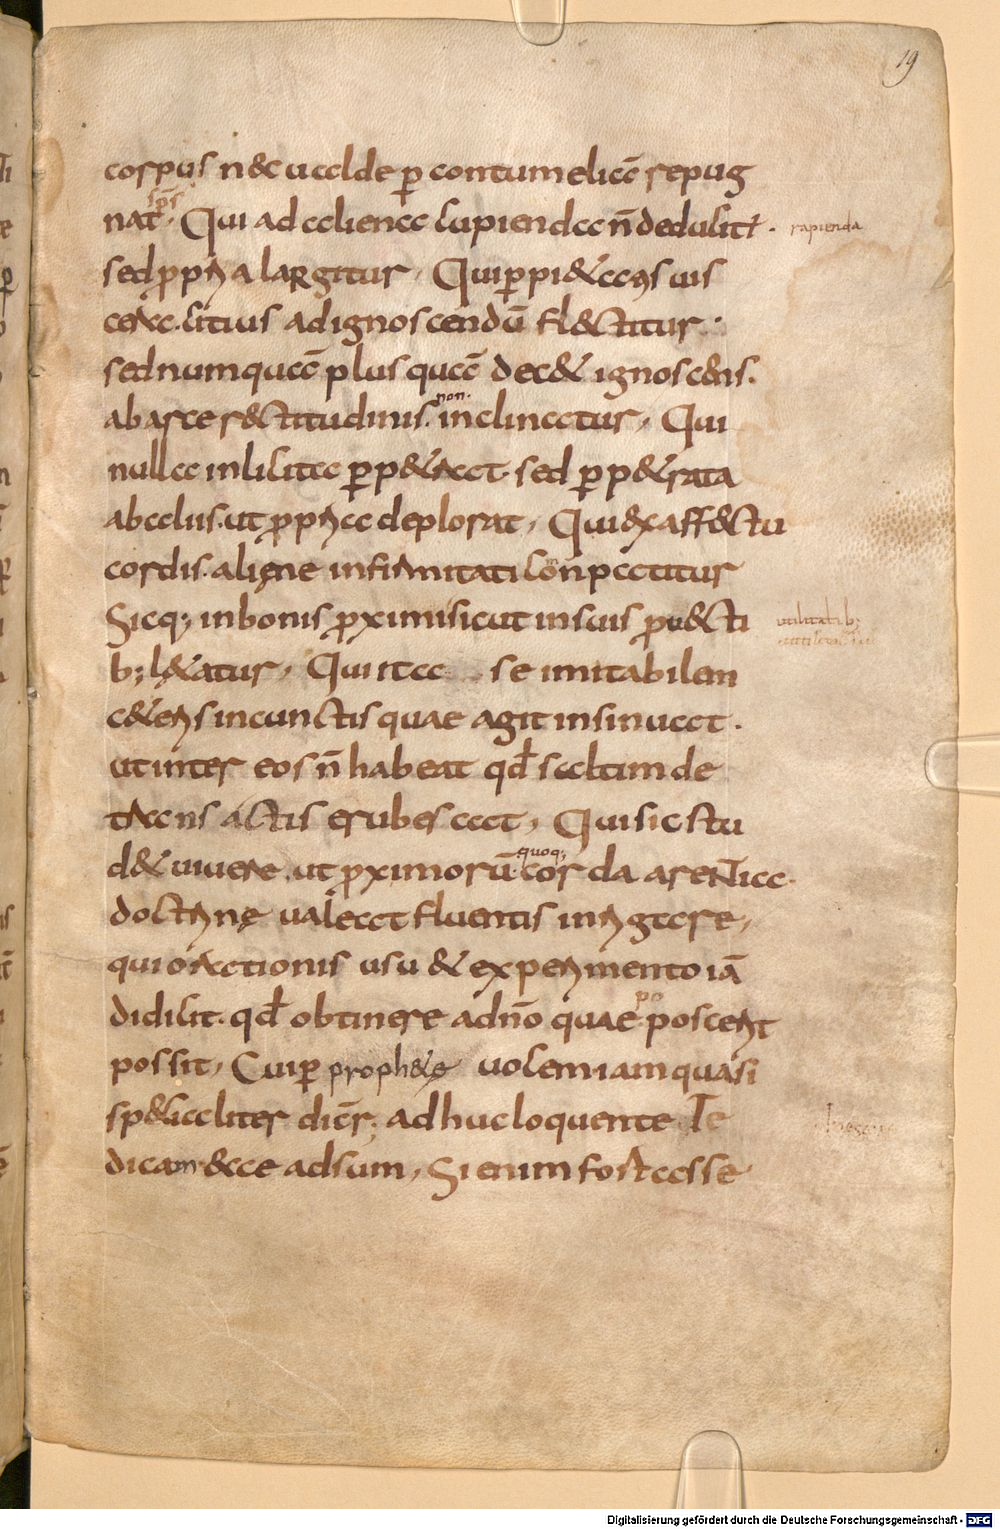 19
corpus nec ualde p̱ contumeliā repug
sp̄s
nat. Qui ad aliena cupienda n̄ deducitur. rapienda
sed propria largitur. Qui p̱ pi&atis uis
cera. citius ad ignoscendū flectitur.
sed numquā plus quā dec&a ignoscens.
non.
ab arce rectitudinis. inclinatur. Qui
nulla inlicita p̱p&rat. sed p̱p&rata
ab aliis. ut propria deplorat. Qui ex affectu
cordis. alienę infirmitati cōnpatitur
Sicq; in bonis proximi sicut in suis prouecti
b; l&atur. Qui ita se imitabilem
c&eris in cunctis quae agit insinuat.
ut inter eos n̄ habeat qd̄ saltim de
transactis erubescat. Qui sic stu
d& uiuere. ut proximorū cor da arentia.
quoq;
doctrinę ualeat fluentis inrigare.
qui orationis usu & experimento iā
didicit. qd̄ obtinere a dn̄o quae poscerit
po
possit. Cui p̱ proph&ę uocem iam quasi
sp&ialiter dic̄r. adhuc loquente Te
dicam &ce adsum. Si enim fortasse
utilitatib;
Digitalisierung gefördert durch die Deutsche Forschungsgemeinschaft - DFG